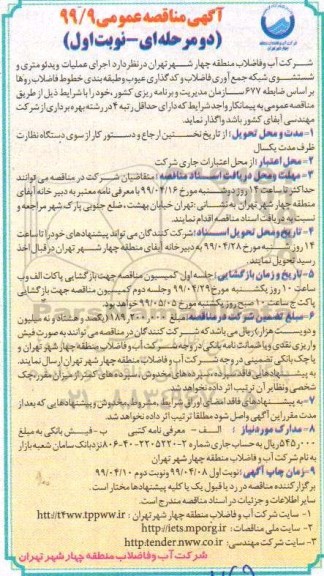 آگهی مناقصه عمومی ۹۹/۹
(دو مرحله‌ای - نوبت اول)
شرکت آب و فاضلاب منطقه چهار شهر تهران در نظر دارد اجرای عملیات ویدئو متری و
شستشوی شبکه جمع آوری فاضلاب و کدگذاری عیوب و طبقه بندی خطوط فاضلاب روها
بر اساس ضابطه ۶۷۷ سازمان مدیریت و برنامه ریزی کشور، خود را با شرایط ذیل از طریق
مناقصه عمومی به پیمانکار واجد شرایط که دارای حداقل رتبه ۴ در رشته بهره برداری از شرکت
مهندسی آبفای کشور باشد واگذار نماید.
۱- مدت و محل تحویل: از تاریخ نخستین ارجاع و دستور کار از سوی دستگاه نظارت
ظرف مدت یکسال
۲- محل اعتبار: از محل اعتبارات جاری شرکت
۳- مهلت و محل دریافت اسناد مناقصه: متقاضیان شرکت در مناقصه می توانند
حداکثر تا ساعت ۱۴ روز دوشنبه مورخ ۹۹/۰۴/۱۶ با معرفی نامه معتبر به دبیرخانه آبفای
منطقه چهار شهر تهران به نشانی: تهران خیابان بهشت، ضلع جنوبی پارک شهر مراجعه و
نسبت به دریافت اسناد مناقصه اقدام نمایند.
۴- تاریخ و محل تحویل اسناد: شرکت کنندگان می تواند پیشنهادهای خود را تا ساعت
۱۴ روز شنبه مورخ ۹۹/۰۴/۲۸ به دبیرخانه آبفای منطقه چهار شهر تهران در قبال اخذ
رسید تحویل نمایند.
۵- تاریخ و زمان بازگشایی: جلسه اول کمیسیون مناقصه جهت بازگشایی پاکات الف و ب
ساعت ۱۰ روز یکشنبه مورخ ۹۹/۰۴/۲۹ و جلسه دوم کمیسیون مناقصه جهت بازگشایی
پاکت ج ساعت ۱۰ صبح روز یکشنبه مورخ ۹۹/۰۵/۰۵ خواهد بود.
۶- مبلغ تضمین شرکت در مناقصه: مبلغ ۱۸۹،۲۰۰،۰۰۰ (یکصد و هشتاد و نه میلیون
و دویست هزار) ریال می باشد که شرکت کنندگان در مناقصه می توانند به صورت فیش
واریزی نقدی و یا ضمانت نامه بانکی در وجه شرکت آب و فاضلاب منطقه چهار شهر تهران و
یا چک بانکی تضمینی در وجه شرکت آب و فاضلاب منطقه چهار شهر تهران ارسال نمایند.
به پیشنهادهای فاقد سپرده، سپرده های مخدوش، سپرده های کمتر از میزان مقرر، چک
شخصی و نظایر آن ترتیب اثر داده نخواهد شد.
۷- به پیشنهادهای فاقد امضاء، مشروط، مخدوش و پیشنهادهایی که بعد از
مدت مقرر این آگهی واصل شود مطلقا ترتیب اثر داده نخواهد شد.
۸- مدارک مورد نیاز: الف - معرفی نامه کتبی ب - فیش بانکی به مبلغ
نزد بانک سامان شعبه بازار
به نام شرکت آب و فاضلاب منطقه چهار شهر تهران
۹- زمان چاپ آگهی: نوبت اول ۹۹/۰۴/۰۸ و نوبت دوم ۹۹/۰۴/۱۰
برگزار کننده مناقصه در رد یا قبول یک یا کلیه پیشنهادها مختار است.
سایر اطلاعات و جزئیات در اسناد مناقصه مندرج است.
۱- سایت شرکت آب و فاضلاب منطقه چهار شهر تهران: http://t4ww.tppww.ir
۲- سایت ملی مناقصات: http://iets.mporg.ir
۳- سایت شرکت مهندسی: http:tender.nww.co.ir
شرکت آب و فاضلاب منطقه چهار شهر تهران